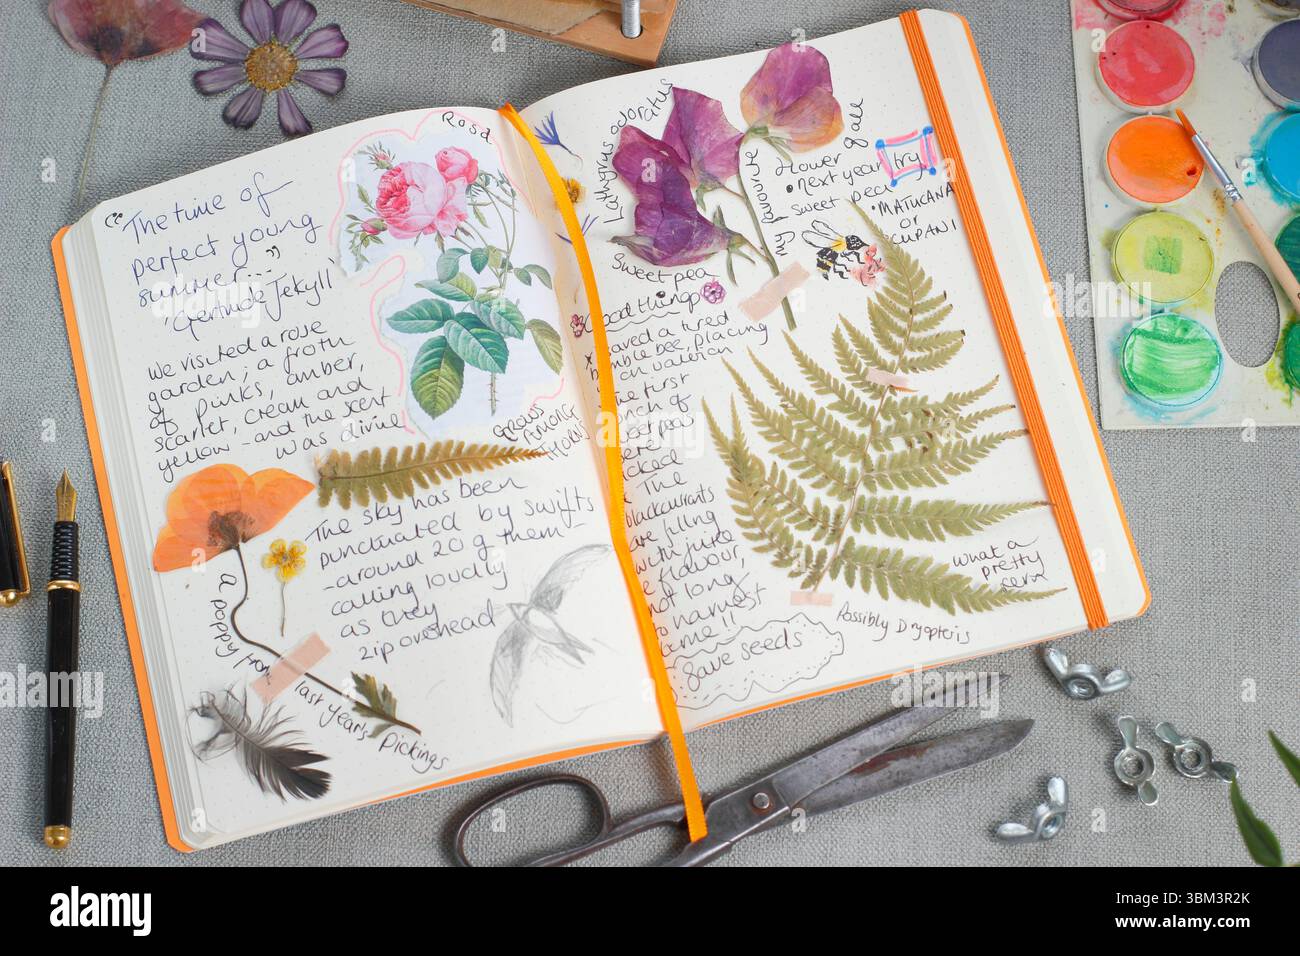 "The time of
perfect young
summer..."
'Gertrude Jekyll'
we visited a rose
garden; a froth
of pinks, amber,
scarlet, cream and
yellow - and the scent
was divine
Rosa
GROWS
AMONG
THORNS
The sky has been
punctuated by swifts
- around 20 of them -
calling loudly
as they
zip overhead
a poppy from
last year's pickings
Lathyrus odoratus
Sweet pea
My favourite
flower of all
• next year try
sweet pea
• MATUCANA
OR
CUPANI
Good things
saved a tired
bumble bee, placing
it on valerian
The first
bunch of
sweet peas
were
picked
The
blackcurrants
are filling
with juice
flavour,
not long
to harvest
time!!
Save seeds
what a
pretty
fern
Possibly Dryopteris
alamy
Image ID: 3BM3R2K
www.alamy.com